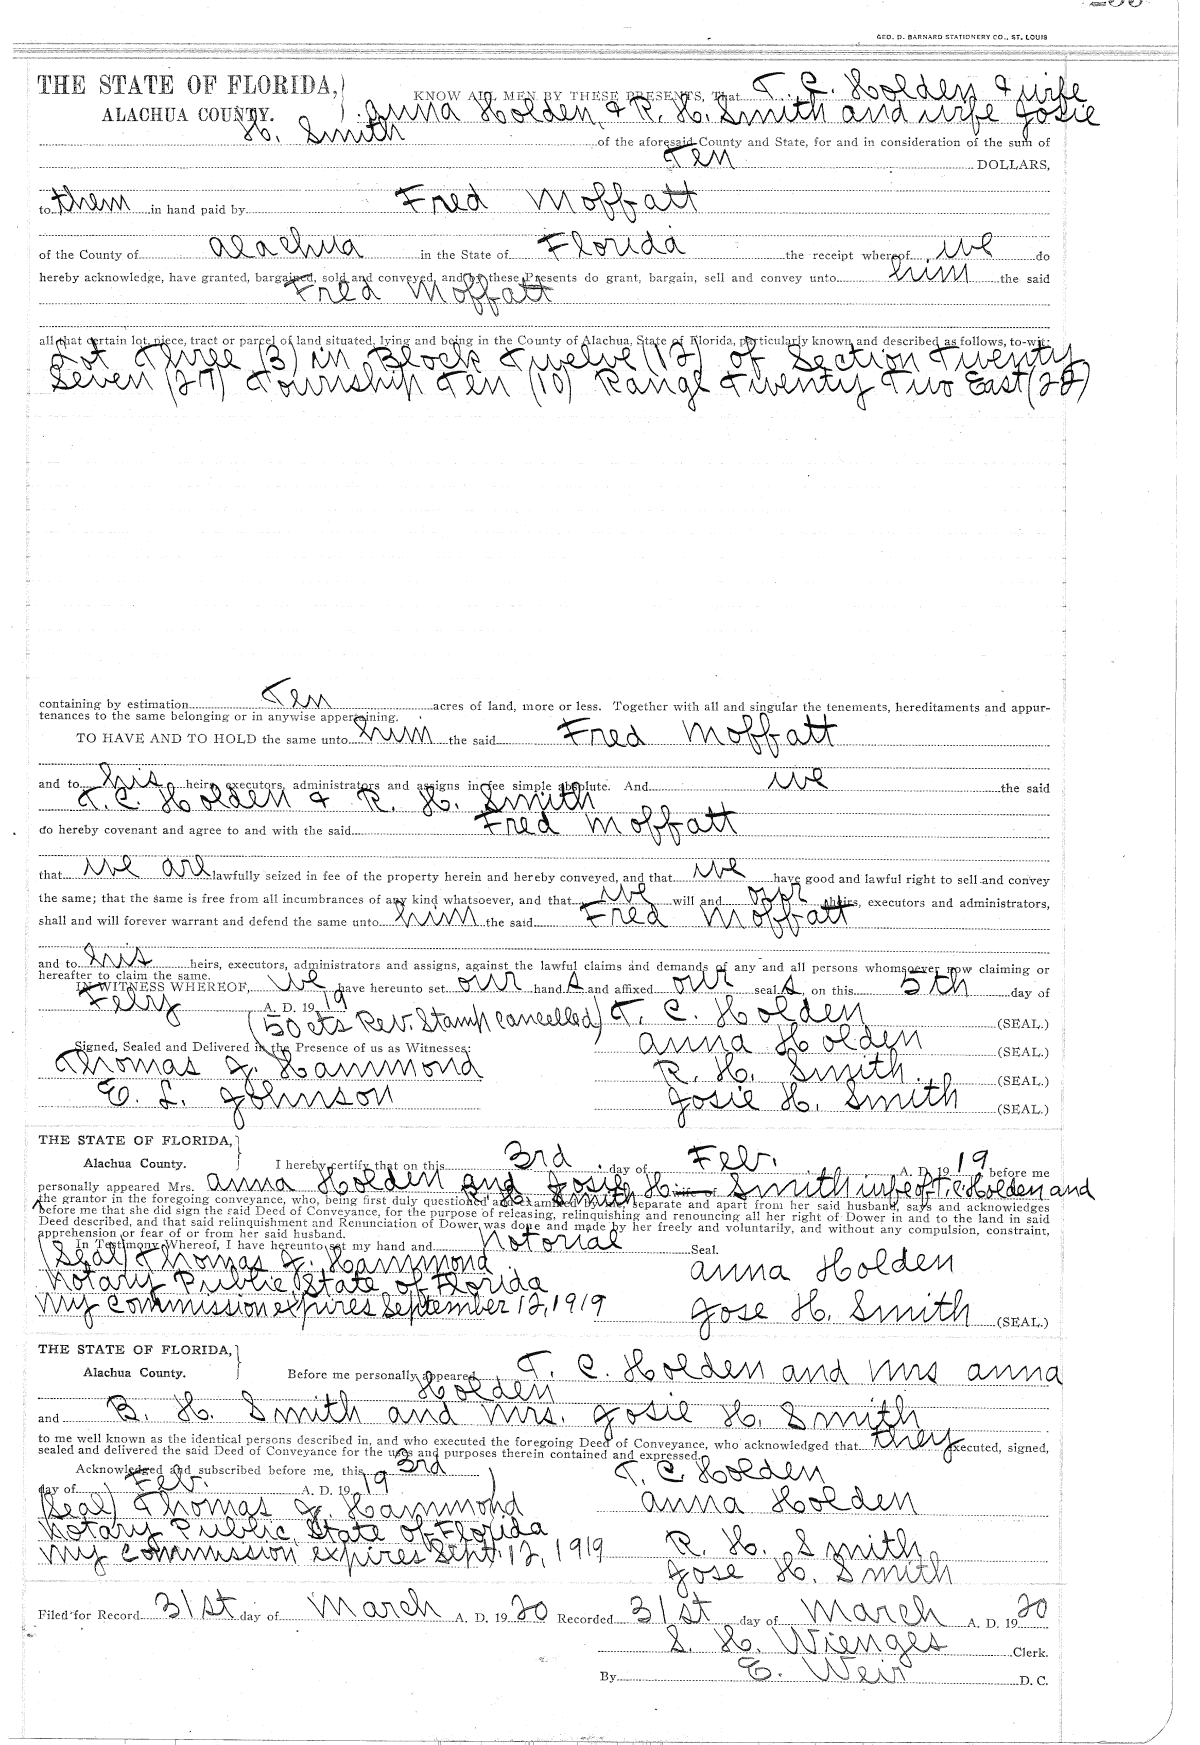 GEO. D. BARNARD STATIONERY CO., ST. LOUIS
THE STATE OF FLORIDA, KNOW ALL MEN BY THESE PRESENTS, That T. C. Holden & wife
ALACHUA COUNTY. Anna Holden, & R. H. Smith and wife Josie
H. Smith of the aforesaid County and State, for and in consideration of the sum of
Ten DOLLARS,
to them in hand paid by Fred Moffatt
of the County of Alachua in the State of Florida the receipt whereof we do
hereby acknowledge, have granted, bargained, sold and conveyed, and by these Presents do grant, bargain, sell and convey unto him the said
Fred Moffatt
all that certain lot, piece, tract or parcel of land situated, lying and being in the County of Alachua, State of Florida, particularly known and described as follows, to-wit:
Lot Three (3) in Block Twelve (12) of Section Twenty
Seven (27) Township Ten (10) Range Twenty Two East (22)
containing by estimation Ten acres of land, more or less. Together with all and singular the tenements, hereditaments and appur-
tenances to the same belonging or in anywise appertaining.
TO HAVE AND TO HOLD the same unto him the said Fred Moffatt
and to his heirs, executors, administrators and assigns in fee simple absolute. And we the said
T. C. Holden & R. H. Smith
do hereby covenant and agree to and with the said Fred Moffatt
that we are lawfully seized in fee of the property herein and hereby conveyed, and that we have good and lawful right to sell and convey
the same; that the same is free from all incumbrances of any kind whatsoever, and that we will and our heirs, executors and administrators,
shall and will forever warrant and defend the same unto him the said Fred Moffatt
and to his heirs, executors, administrators and assigns, against the lawful claims and demands of any and all persons whomsoever now claiming or
hereafter to claim the same.
IN WITNESS WHEREOF, we have hereunto set our hand s and affixed our seal s, on this 5th day of
Feby A. D. 19 19
(50 cts Rev. Stamp cancelled) T. C. Holden (SEAL.)
Signed, Sealed and Delivered in the Presence of us as Witnesses: Anna Holden (SEAL.)
Thomas J. Hammond R. H. Smith (SEAL.)
E. L. Johnson Josie H. Smith (SEAL.)
THE STATE OF FLORIDA,
Alachua County. I hereby certify that on this 3rd day of Feb. A. D. 19 19 before me
personally appeared Mrs. Anna Holden and Josie H. Smith wife of T. C. Holden and
R. H. Smith
the grantor in the foregoing conveyance, who, being first duly questioned and examined by me, separate and apart from her said husband, says and acknowledges
before me that she did sign the said Deed of Conveyance, for the purpose of releasing, relinquishing and renouncing all her right of Dower in and to the land in said
Deed described, and that said relinquishment and Renunciation of Dower was done and made by her freely and voluntarily, and without any compulsion, constraint,
apprehension or fear of or from her said husband.
In Testimony Whereof, I have hereunto set my hand and Notorial Seal.
(Seal) Thomas J. Hammond Anna Holden
Notary Public State of Florida
My commission expires September 12, 1919 Jose H. Smith (SEAL.)
THE STATE OF FLORIDA,
Alachua County. Before me personally appeared T. C. Holden and Mrs Anna
Holden
and B. H. Smith and Mrs. Josie H. Smith
to me well known as the identical persons described in, and who executed the foregoing Deed of Conveyance, who acknowledged that they executed, signed,
sealed and delivered the said Deed of Conveyance for the uses and purposes therein contained and expressed.
Acknowledged and subscribed before me, this 3rd T. C. Holden
day of Feb. A. D. 19 19
(Seal) Thomas J. Hammond Anna Holden
Notary Public, State of Florida
My commission expires Sept. 12, 1919 R. H. Smith
Jose H. Smith
Filed for Record 31st day of March A. D. 19 20 Recorded 31st day of March A. D. 19 20
S. H. Wienges Clerk.
By E. Weir D. C.